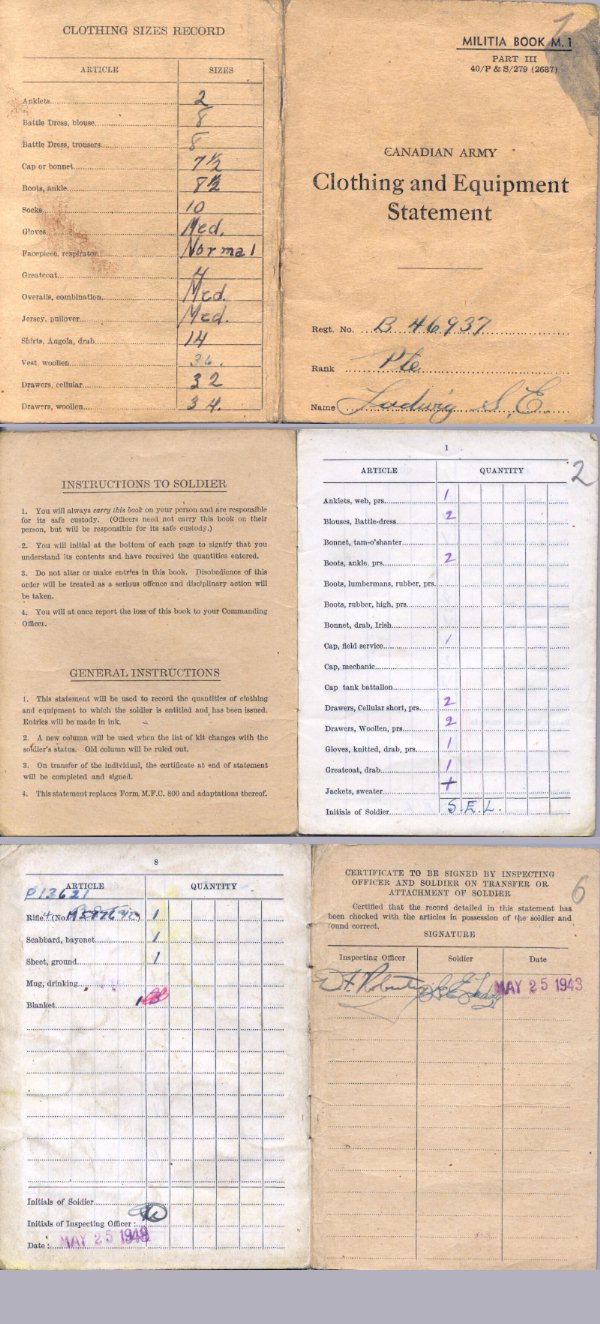 CLOTHING SIZES RECORD
ARTICLE SIZES
Anklets 2
Battle Dress, blouse 8
Battle Dress, trousers 8
Cap or bonnet 7 1/2
Boots, ankle 8 1/2
Socks 10
Gloves Med.
Facepiece, respirator Normal
Greatcoat 4
Overalls, combination Med.
Jersey, pullover Med.
Shirts, Angola, drab 14
Vest woollen 36.
Drawers, cellular 32
Drawers, woollen 34.
MILITIA BOOK M. 1
PART III
40/P & S/279 (2687)
CANADIAN ARMY
Clothing and Equipment
Statement
Regt. No. B 46937
Rank Pte
Name Ludwig S.E.
INSTRUCTIONS TO SOLDIER
1. You will always carry this book on your person and are responsible
for its safe custody. (Officers need not carry this book on their
person, but will be responsible for its safe custody.)
2. You will initial at the bottom of each page to signify that you
understand its contents and have received the quantities entered.
3. Do not alter or make entries in this book. Disobedience of this
order will be treated as a serious offence and disciplinary action will
be taken.
4. You will at once report the loss of this book to your Commanding
Officer.
GENERAL INSTRUCTIONS
1. This statement will be used to record the quantities of clothing
and equipment to which the soldier is entitled and has been issued.
Entries will be made in ink.
2. A new column will be used when the list of kit changes with the
soldier's status. Old column will be ruled out.
3. On transfer of the individual, the certificate at end of statement
will be completed and signed.
4. This statement replaces Form, M.F.C. 800 and adaptations thereof.
1
2
ARTICLE QUANTITY
Anklets, web, prs. 1
Blouses, Battle-dress 2
Bonnet, tam-o'shanter
Boots, ankle, prs. 2
Boots, lumbermans, rubber, prs.
Boots, rubber, high, prs.
Bonnet, drab, Irish
Cap, field service 1
Cap, mechanic
Cap tank battalion
Drawers, Cellular short, prs. 2
Drawers, Woollen, prs. 2
Gloves, knitted, drab, prs. 1
Greatcoat, drab 1
Jackets, sweater
Initials of Soldier S.E.L.
8
ARTICLE QUANTITY
P13621
Rifle (No. 1
Scabbard, bayonet 1
Sheet, ground 1
Mug, drinking
Blanket
Initials of Soldier
Initials of Inspecting Officer:
Date: MAY 25 1943
6
CERTIFICATE TO BE SIGNED BY INSPECTING
OFFICER AND SOLDIER ON TRANSFER OR
ATTACHMENT OF SOLDIER
Certified that the record detailed in this statement has
been checked with the articles in possession of the soldier and
found correct.
SIGNATURE
Inspecting Officer Soldier Date
MAY 25 1943